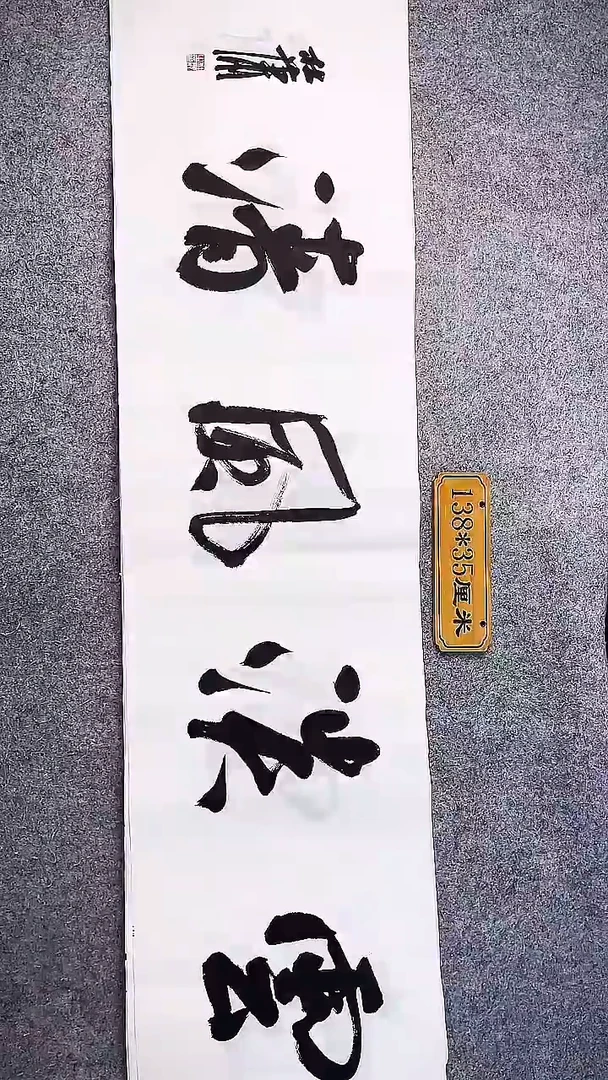 雲淡風清
138*35厘米